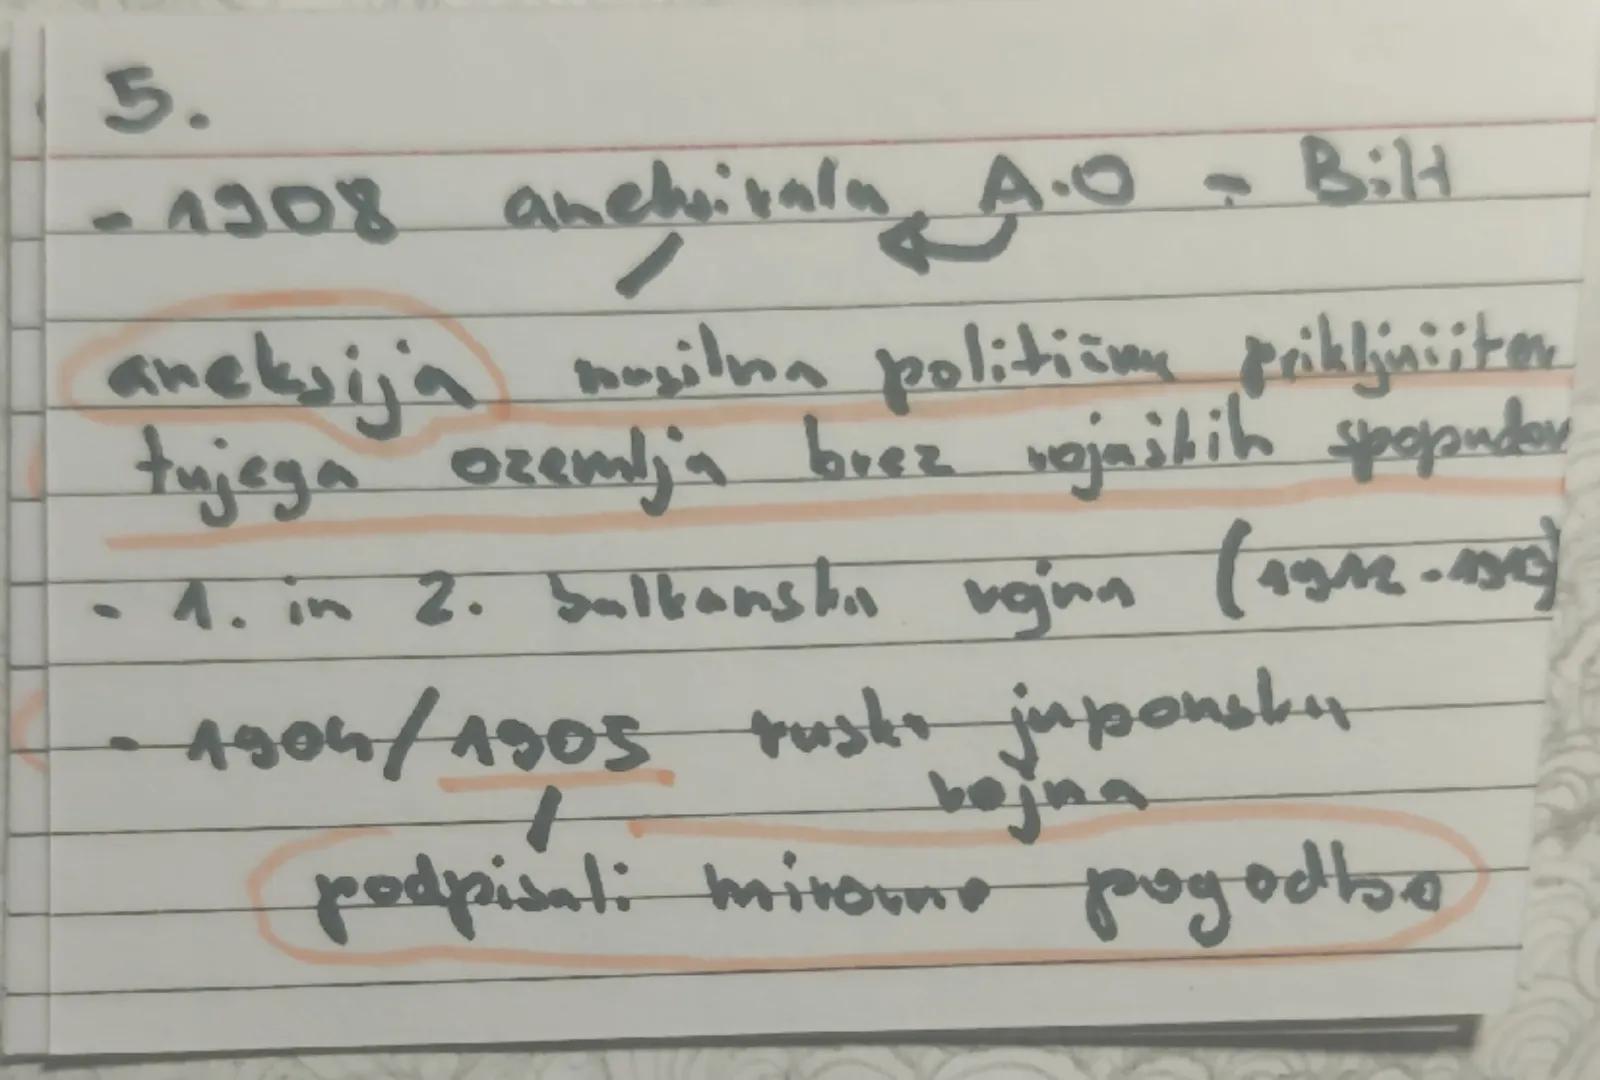 5.
- 1908 aneksirala A.O - BiH
aneksija nasilna politična priključitev
tujega ozemlja brez vojaških spopadov
- 1. in 2. balkanska vojna (1912-1913)
- 1904/1905 rusko japonska
vojna
podpisali mirovno pogodbo